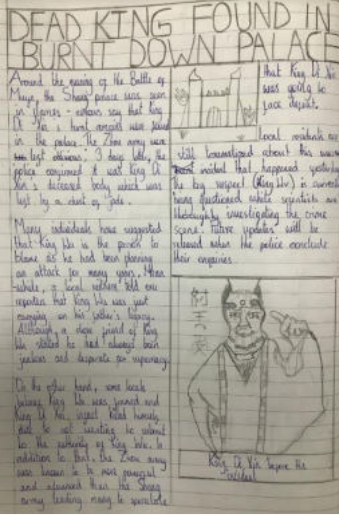 DEAD KING FOUND IN
BURNT DOWN PALACE
Around the evening of the Battle of
Muye, the Shang palace was seen
in flames - rumours say that King
Di Xin's burnt remains were found
in the palace, the Zhou army were
last
3 days later, the
police confirmed it was King Di
Xin's deceased body which was
lost by a duel of jade.
Many individuals have suggested
that King Wu is the person to
blame as he had been planning
an attack for many years. Mean
-while, a local
reported that King Wu was just
carrying on his father's legacy.
Although, a close friend of King
Wu stated he had always been
jealous and desperate for supremacy.
On the other hand, some locals
believe King Wu was
and
King Di Xin,
killed himself
due to not wanting to submit
to the
of King Wu. In
addition to that, the Zhou army
was known to be more powerful
and advanced than the Shang
army leading many to speculate
that King Di Xin
was going to
face defeat.
Local residents are
still traumatised about this
incident that happened yesterday
the key suspect (King Wu) is currently
being questioned while scientists are
thoroughly investigating the crime
scene. Future updates will be
released when the police conclude
their enquiries.
King Di Xin before the
incident